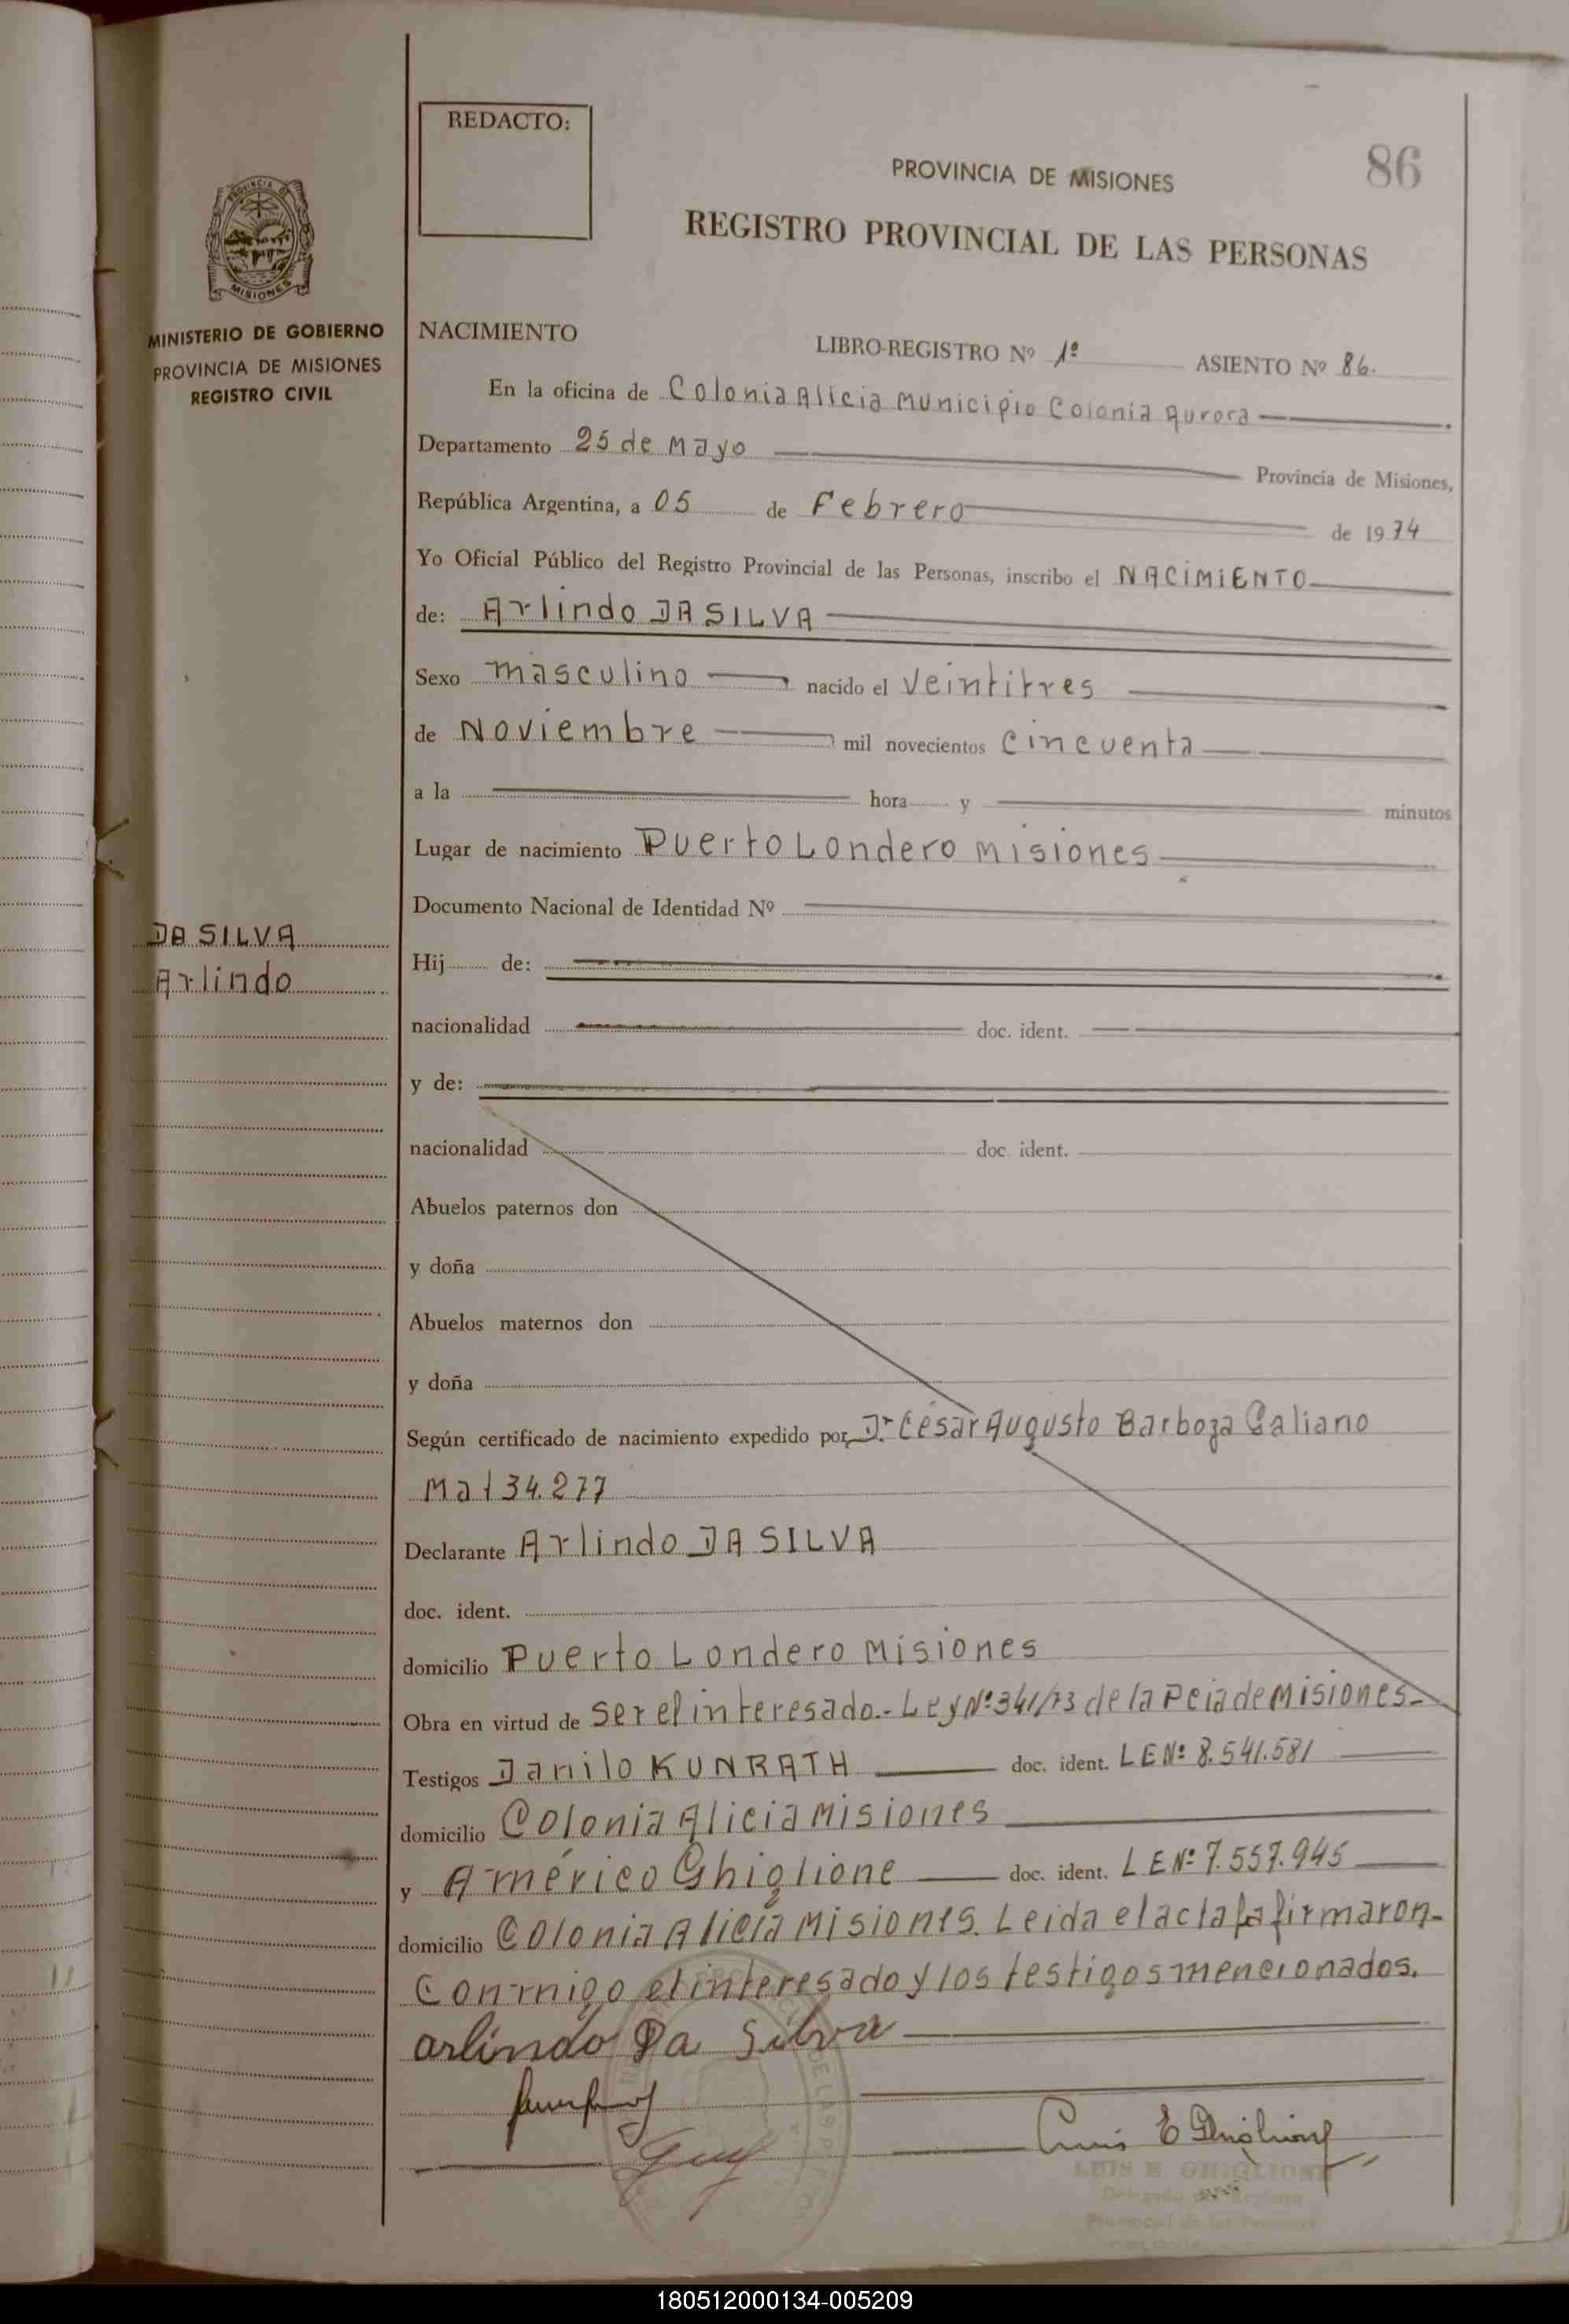 REDACTO:
86
PROVINCIA DE MISIONES
REGISTRO PROVINCIAL DE LAS PERSONAS
PROVINCIA DE
MISIONES
MINISTERIO DE GOBIERNO
PROVINCIA DE MISIONES
REGISTRO CIVIL
NACIMIENTO
LIBRO-REGISTRO Nº 1º ASIENTO Nº 86.
En la oficina de Colonia Alicia Municipio Colonia Aurora
Departamento 25 de Mayo Provincia de Misiones,
República Argentina, a 05 de Febrero de 1974
Yo Oficial Público del Registro Provincial de las Personas, inscribo el NACIMIENTO
de: Arlindo DA SILVA
Sexo masculino nacido el Veintitres
de Noviembre mil novecientos Cincuenta
a la hora y minutos
Lugar de nacimiento Puerto Londero Misiones
Documento Nacional de Identidad Nº
DA SILVA
Arlindo
Hij de:
nacionalidad doc. ident.
y de:
nacionalidad doc. ident.
Abuelos paternos don
y doña
Abuelos maternos don
y doña
Según certificado de nacimiento expedido por Dr César Augusto Barboza Galiano
Mat 34.277
Declarante Arlindo DA SILVA
doc. ident.
domicilio Puerto Londero Misiones
Obra en virtud de Ser el interesado.- Ley Nº 341/73 de la Pcia de Misiones-
Testigos Danilo KUNRATH doc. ident. LE Nº 8.541.581
domicilio Colonia Alicia Misiones
y Américo Ghiglione doc. ident. LE Nº 7.557.945
domicilio Colonia Alicia Misiones. Leida el acta la firmaron-
Conmigo el interesado y los testigos mencionados.
arlindo Da Silva
Luis E Ghiglione
LUIS E. GHIGLIONE
Delegado del Registro
Provincial de las Personas
180512000134-005209